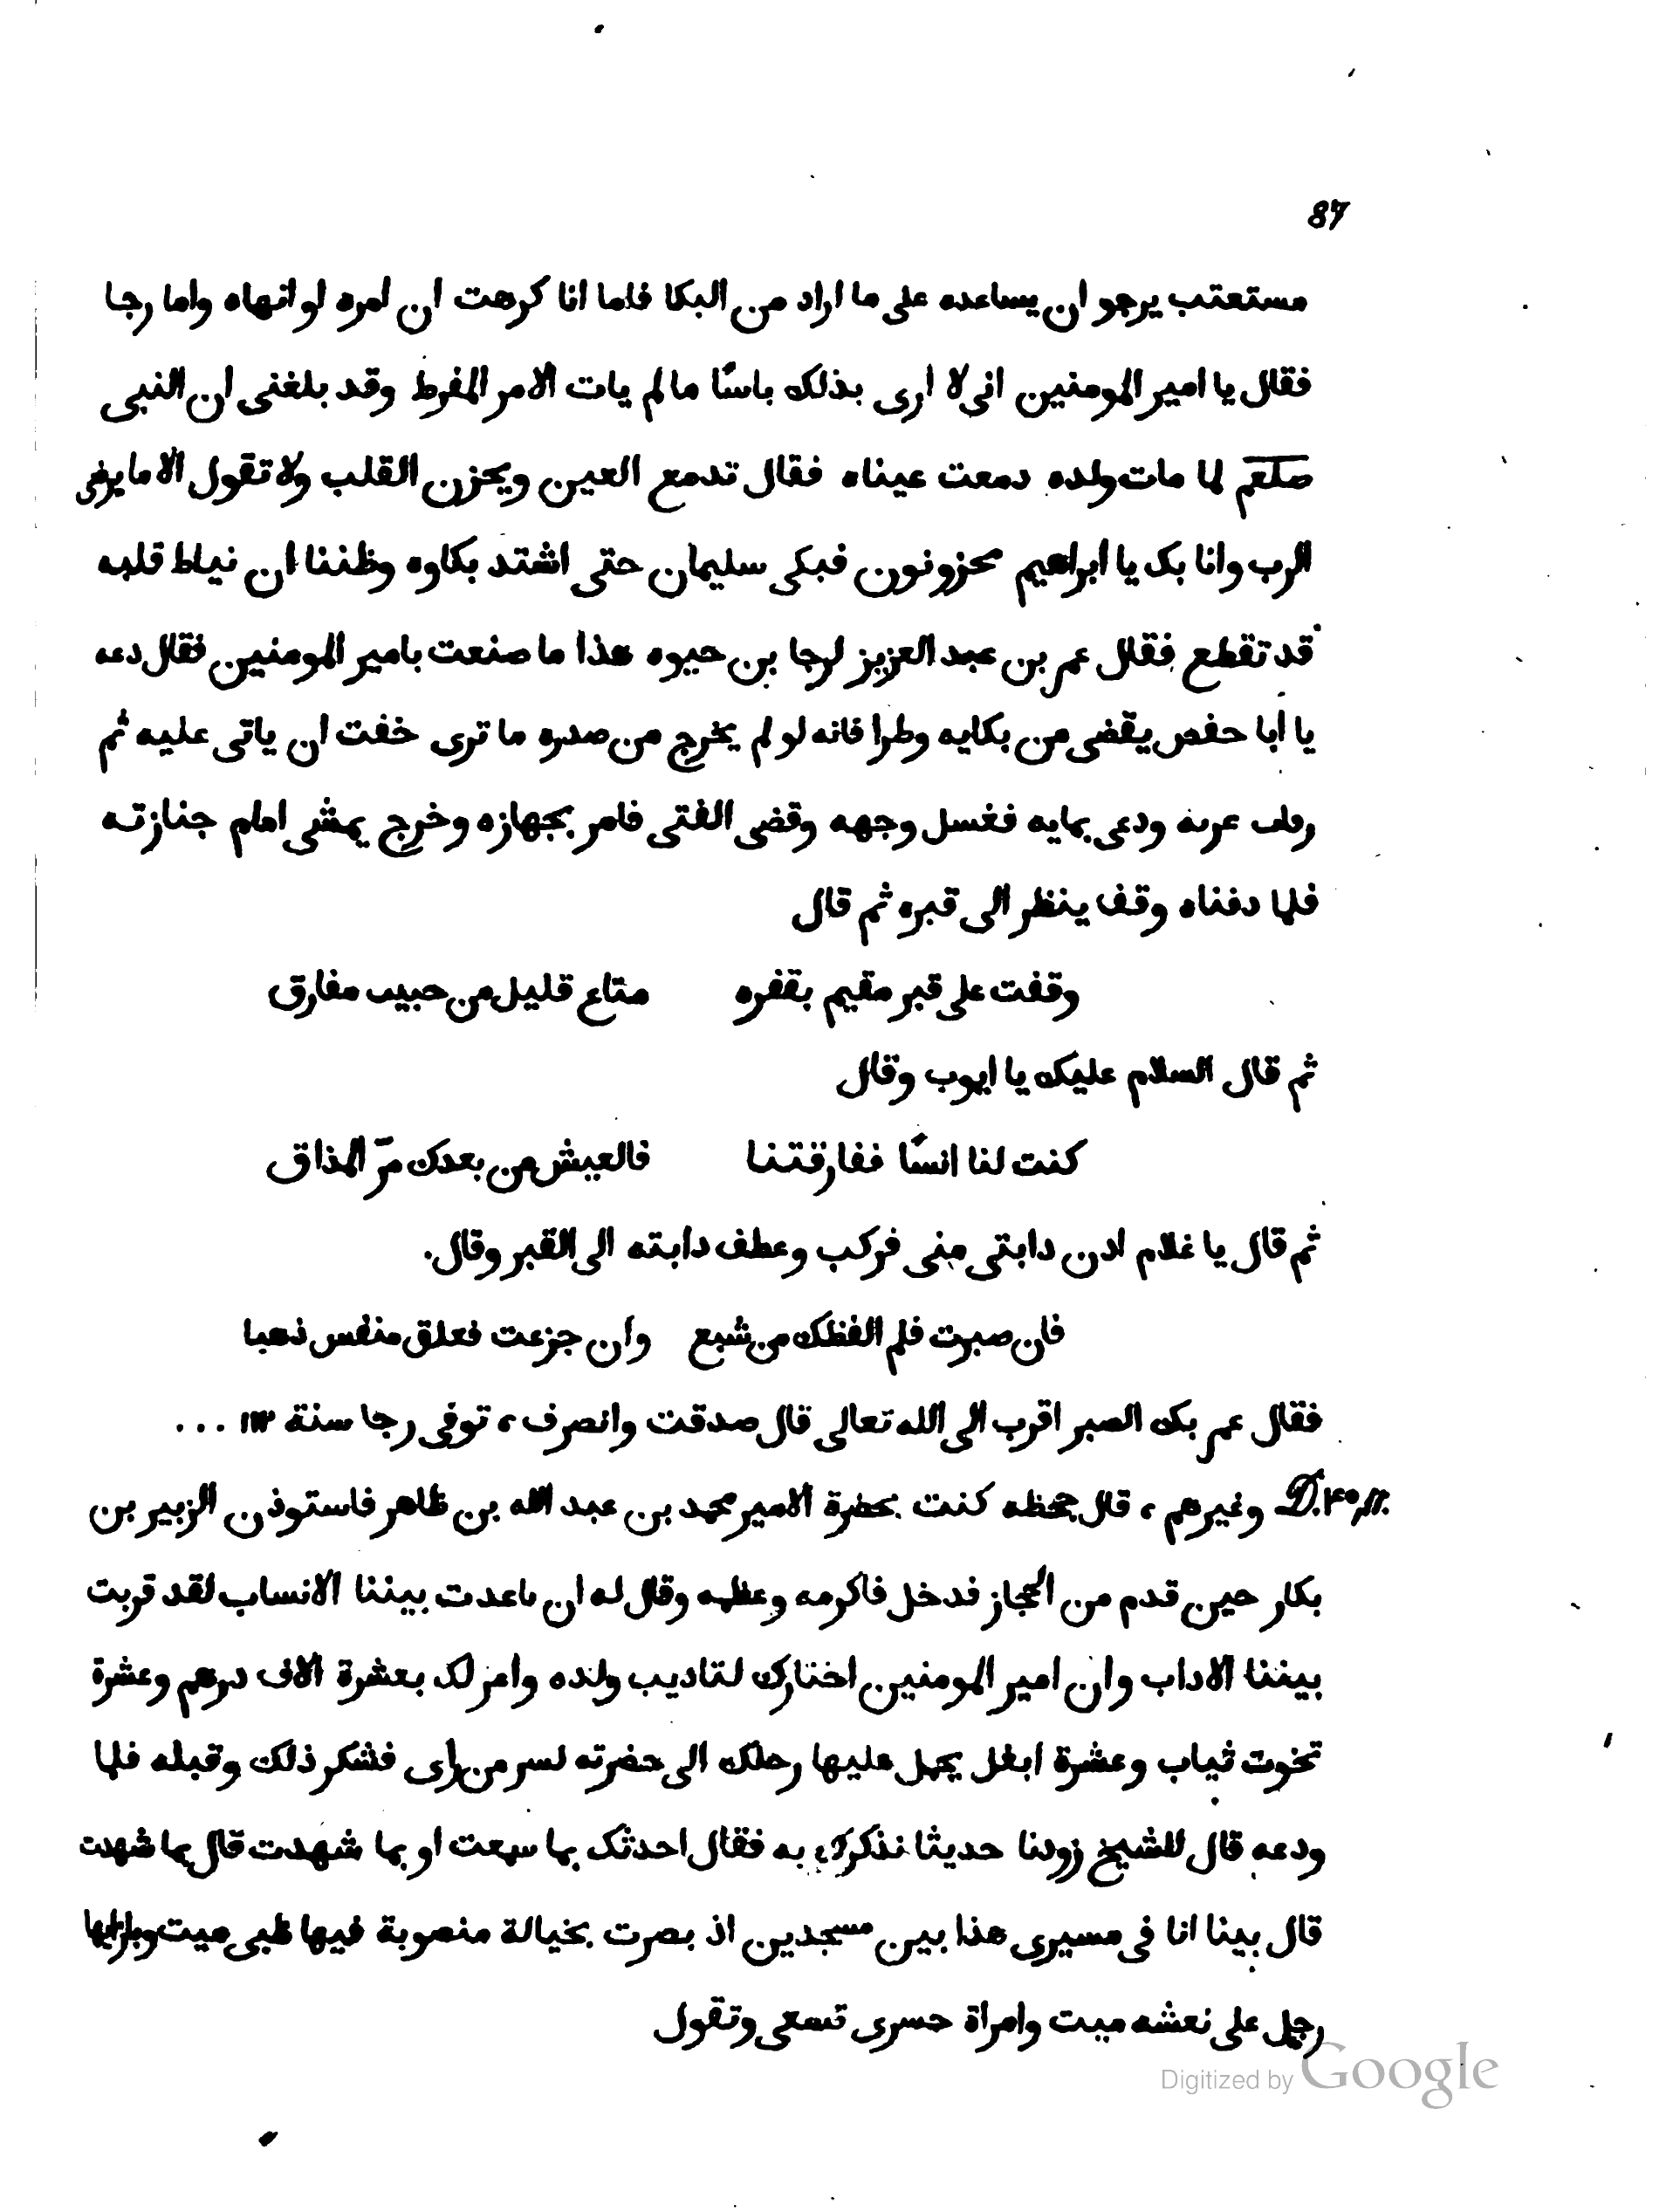 87
مستعتب يرجو ان يساعده على ما اراد من البكا فاما انا كرهت ان امره لو انهاه واما رجا
فقال يا امير المومنين انى لا ارى بذلك باسًا ما لم يات الامر المفرط وقد بلغنى ان النبى
صلعم لما مات ولده دمعت عيناه فقال تدمع العين ويحزن القلب ولا تقول الا ما يرضى
الرب وانا بك يا ابراهيم محزونون فبكى سليمان حتى اشتد بكاوه وظننا ان نياط قلبه
قد تقطع فقال عمر بن عبد العزيز لرجا بن حيوه هذا ما صنعت بامير المومنين فقال دعه
يا أبا حفص يقضى من بكايه وطرا فانه لو لم يخرج من صدره ما ترى خفت ان ياتى عليه ثم
ودعى بمايه فغسل وجهه وقضى الفتى فامر بجهازه وخرج يمشى امام جنازته
فلما دفناه وقف ينظر الى قبره ثم قال
وقفت على قبر مقيم بقفره متاع قليل من حبيب مفارق
ثم قال السلام عليك يا ايوب وقال
كنت لنا انسًا ففارقتنا فالعيش من بعدك مرّ المذاق
ثم قال يا غلام ادن دابتى منى فركب وعطف دابته الى القبر وقال.
فان صبرت فلم الفظك من شبع وان جزعت فعلق منفس ذهبا
فقال عمر بك الصبر اقرب الى الله تعالى قال صدقت وانصرف، توفى رجا سنة ١١٣ ...
وغيرهم، قال جحظه كنت بحضرة الامير محمد بن عبد الله بن طاهر فاستوذن الزبير بن
بكار حين قدم من الحجاز فدخل فاكرمه وعظمه وقال له ان باعدت بيننا الانساب لقد قربت
بيننا الاداب وان امير المومنين اختارك لتاديب ولده وامر لك بعشرة الاف درهم وعشرة
تخوت ثياب وعشرة ابغل يحمل عليها رحلك الى حضرته لسر من راى فشكر ذلك وقبله فلما
ودعه قال للشيخ زودنا حديثا نذكرك به فقال احدثك بما سمعت او بما شهدت قال بما شهدت
قال بينا انا فى مسيرى هذا بين مسجدين اذ بصرت بخيالة منصوبة فيها ظبى ميت وبازايها
رجل على نعشه ميت وامراة حسرى تسعى وتقول
Digitized by Google